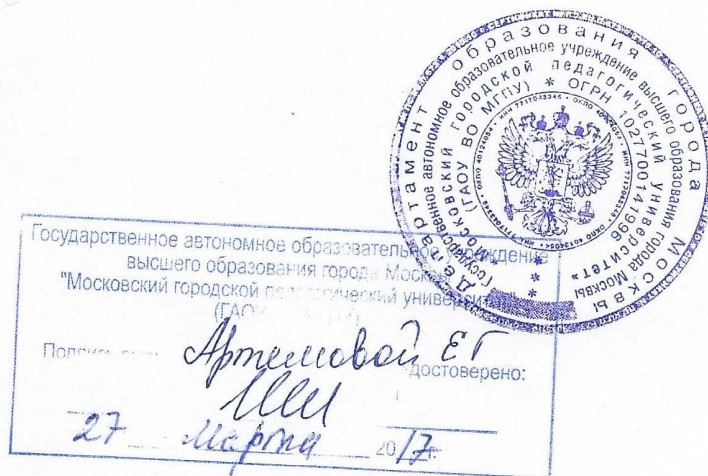 Департамент образования города Москвы
Государственное автономное образовательное учреждение высшего образования города Москвы
«Московский городской педагогический университет»
(ГАОУ ВО МГПУ) * ОГРН 1027700141996 *
Государственное автономное образовательное учреждение
высшего образования города Москвы
"Московский городской педагогический университет"
Артемовой ЕГ
достоверено:
27 марта 2017г.